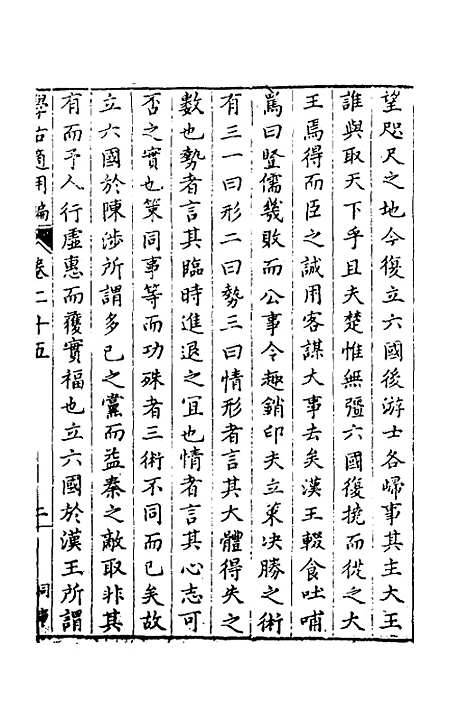 望咫尺之地今復立六國後游士各歸事其主大王
誰與取天下乎且夫楚惟無彊六國復撓而從之大
王焉得而臣之誠用客謀大事去矣漢王輟食吐哺
罵曰豎儒幾敗而公事令趣銷印夫立策決勝之術
有三一曰形二曰勢三曰情形者言其大體得失之
數也勢者言其臨時進退之宜也情者言其心志可
否之實也策同事等而功殊者三術不同而已矣故
立六國於陳涉所謂多已之黨而益秦之敵取非其
有而予人行虛惠而獲實福也立六國於漢王所謂
學古適用編 卷二十五 二